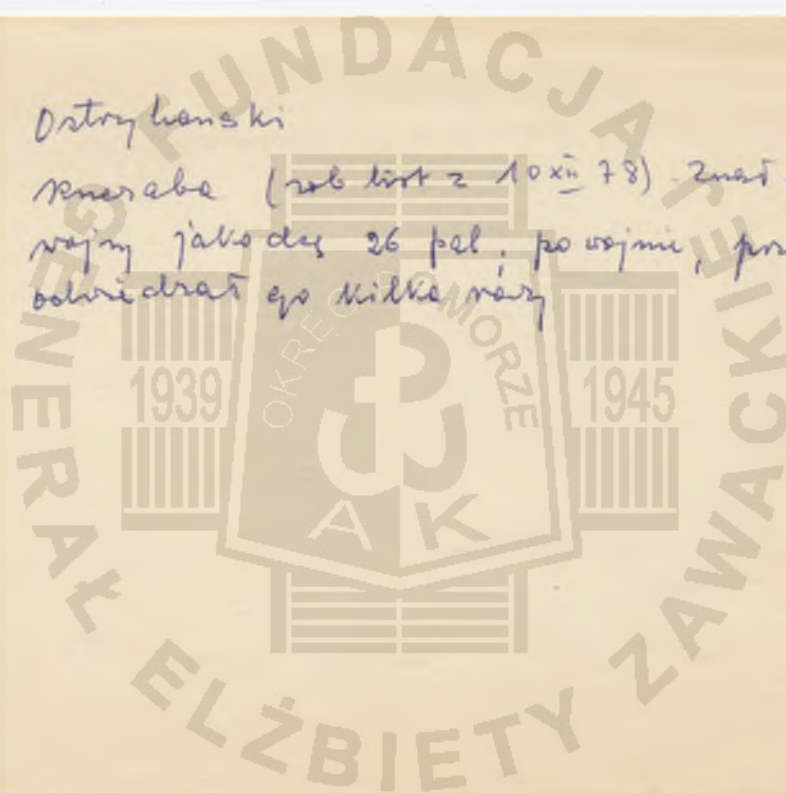 Ostryhanski
Kneraba (zob list z 10 XII 78) Znał
wojny jako dcę 26 pal, po wojnie,
odwiedzał go kilka razy
FUNDACJA
GENERAŁ ELŻBIETY ZAWACKIEJ
OKRĘG POMORZE
1939
1945
AK